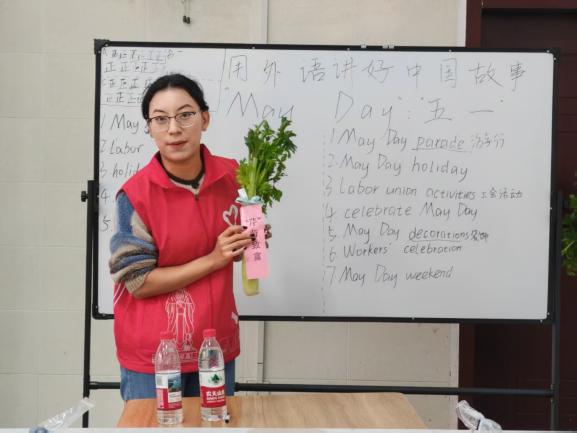 用外语讲好中国故事
"May Day" "五一"
正正正正正
正正正正正
1 May
2 Labor
3 holid
4
5
1 May Day parade 游行
2. May Day holiday
3 Labor union activities 工会活动
4 celebrate May Day
5 May Day decorations 装饰
6 Workers' celebration
7 May Day weekend
致富
农夫山泉